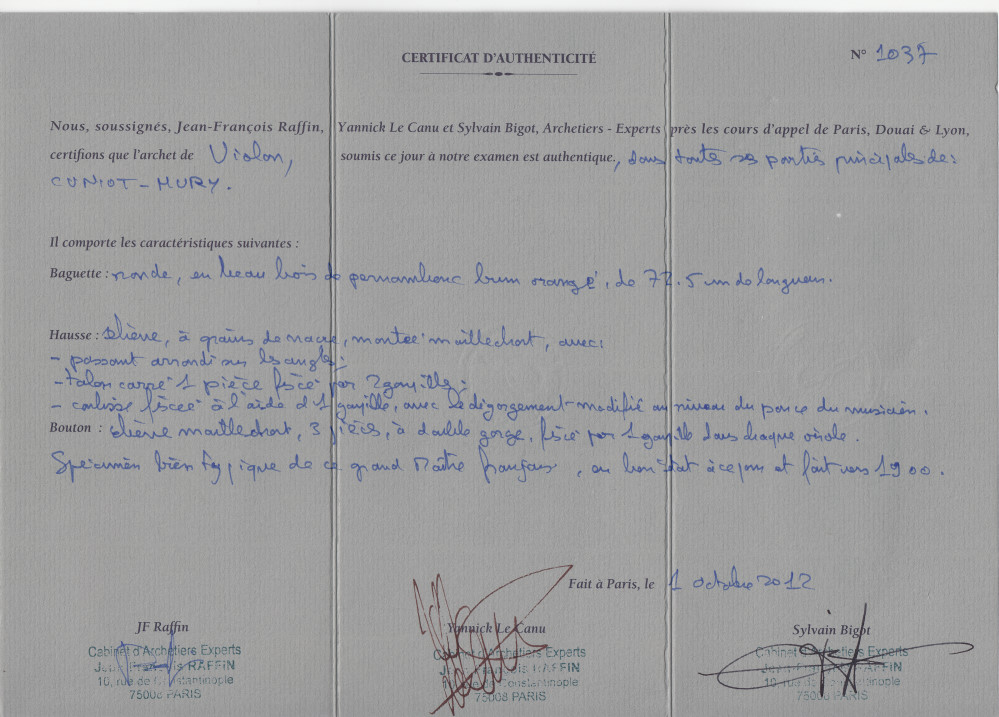 CERTIFICAT D'AUTHENTICITÉ
N° 1037
Nous, soussignés, Jean-François Raffin, Yannick Le Canu et Sylvain Bigot, Archetiers - Experts près les cours d'appel de Paris, Douai & Lyon,
certifions que l'archet de Violon, soumis ce jour à notre examen est authentique., dans toutes ses parties principales de:
CUNIOT-HURY.
Il comporte les caractéristiques suivantes :
Baguette : ronde, en beau bois de pernambouc brun orangé, de 72.5 cm de longueur.
Hausse : ébène, à grains de nacre, montée maillechort, avec:
- passant arrondi sur les angles;
- talon carré 1 pièce fixé par 2 goupilles;
- coulisse fixée à l'aide d'1 goupille, avec le dégorgement modifié au niveau du pouce du musicien.
Bouton : ébène maillechort, 3 pièces, à double gorge, fixé par 1 goupille dans chaque virole.
Spécimen bien typique de ce grand Maître français, en bon état à ce jour et fait vers 1900.
Fait à Paris, le 1 octobre 2012
JF Raffin
Yannick Le Canu
Sylvain Bigot
Cabinet d'Archetiers Experts
Jean-François RAFFIN
10, rue de Constantinople
75008 PARIS
Cabinet d'Archetiers Experts
Jean-François RAFFIN
10, rue de Constantinople
75008 PARIS
Cabinet d'Archetiers Experts
Jean-François RAFFIN
10, rue de Constantinople
75008 PARIS